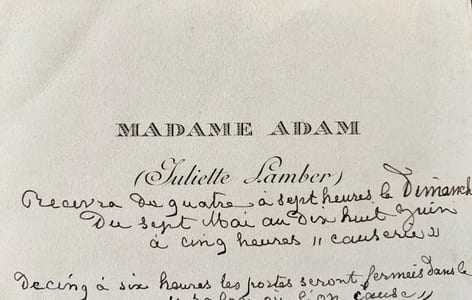 MADAME ADAM
(Juliette Lamber)
Recevra de quatre à sept heures le Dimanch
Du sept Mai au Dix huit Juin
à cinq heures „ causerie „
De cinq à six heures les portes seront fermées dans le
salon où l'on cause „